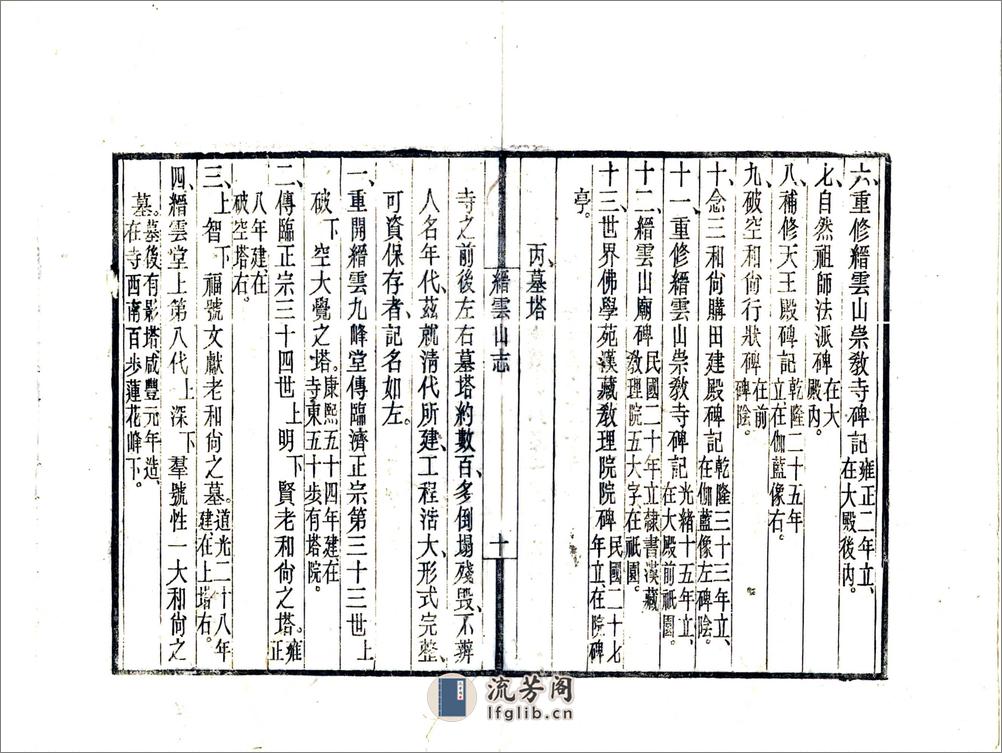 六、重修縉雲山崇教寺碑記雍正二年立、在大殿後內。
七、自然祖師法派碑在大殿內。
八、補修天王殿碑記乾隆二十五年立在伽藍像右。
九、破空和尙行狀碑在前碑陰。
十、念三和尙購田建殿碑記乾隆三十三年立、在伽藍像左碑陰。
十一、重修縉雲山崇教寺碑記光緒十五年立、在大殿前祇園。
十二、縉雲山廟碑民國二十年立隸書漢藏教理院五大字在祇園。
十三、世界佛學苑漢藏教理院院碑民國二十七年立、在院碑
亭。
丙、墓塔
縉雲山志
十
寺之前後左右墓塔約數百、多倒塌殘毀、不辨
人名年代、茲就清代所建、工程浩大、形式完整、
可資保存者、記名如左。
一、重開縉雲九峰堂傳臨濟正宗第三十三世上
破下空大覺之塔。康熙五十四年建、在寺東五十步有塔院。
二、傳臨正宗三十四世上明下賢老和尙之塔。雍正
八年建在破空塔右。
三、上智下福號文獻老和尙之墓。道光二十八年建在上塔右。
四、縉雲堂上第八代上深下羣號性一大和尙之
墓。墓後有影塔咸豐元年造、在寺西南百步蓮花峰下。
流芳阁
lfglib.cn